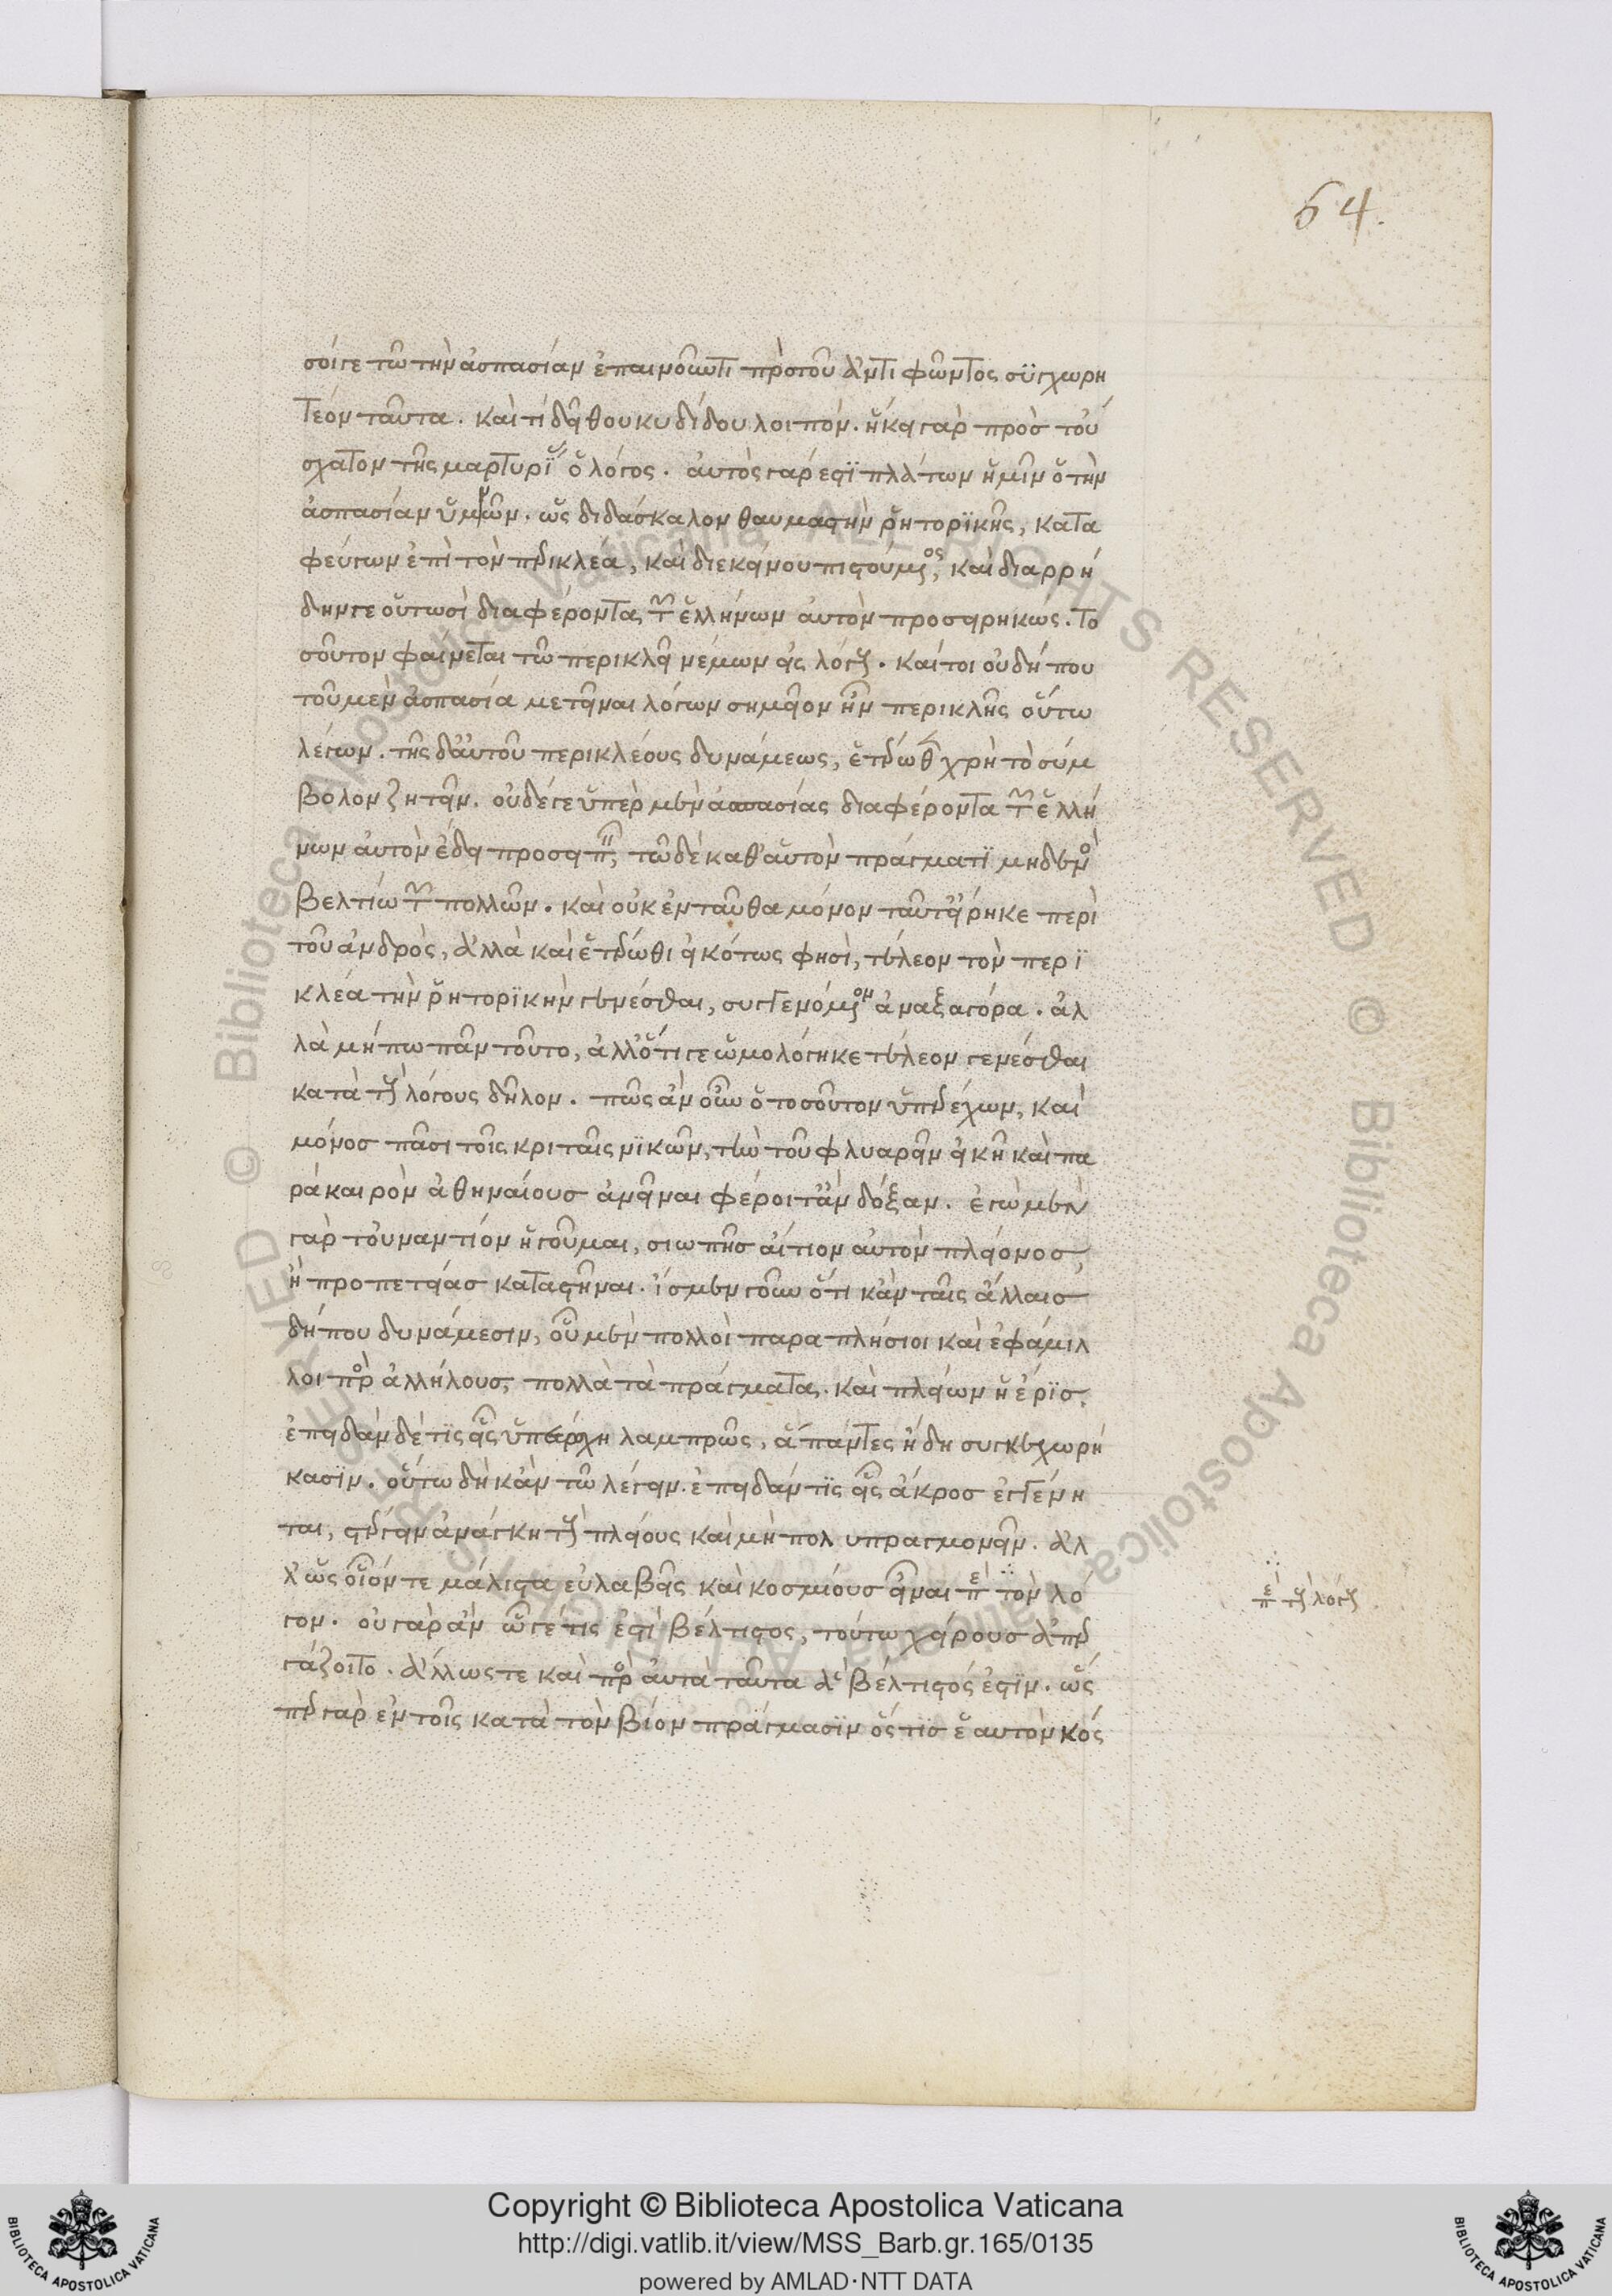 64.
σοί γε τῶ τὴν ἀσπασίαν ἐπαινοῦντι πρὸ τοῦ ἀντιφῶντος συγχωρη
τέον ταῦτα. καὶ τί δεῖ θουκυδίδου λοιπόν. ἥκει γὰρ πρὸσ τοὔ
σχατον τῆς μαρτυρίας ὁ λόγος. αὐτὸς γάρ ἐστι πλάτων ἡμῖν ὁ τὴν
ἀσπασίαν ὑμνῶν. ὡς διδάσκαλον θαυμαστὴν ῥητορικῆς, κατα
φεύγων ἐπὶ τὸν περικλέα, καὶ δι' ἐκείνου πιστούμενος, καὶ διαρρή
δην γε οὑτωσὶ διαφέροντα τῶν ἑλλήνων αὐτὸν προσειρηκώς. το
σοῦτον φαίνεται τῶ περικλεῖ νέμων εἰς λόγους. καίτοι οὐ δή που
τοῦ μὲν ἀσπασία μετεῖναι λόγων σημεῖον ἦν περικλῆς οὕτω
λέγων. τῆς δ' αὐτοῦ περικλέους δυνάμεως, ἑτέρωθι χρὴ τὸ σύμ
βολον ζητεῖν. οὐδέ γε ὑπὲρ μὲν ἀσπασίας διαφέροντα τῶν ἑλλή
νων αὐτὸν ἔδει προσειπεῖν, τῶ δὲ καθ' αὑτὸν πράγματι μηδενὸς
βελτίω τῶν πολλῶν. καὶ οὐκ ἐνταῦθα μόνον ταῦτ' εἴρηκε περὶ
τοῦ ἀνδρὸς, ἀλλὰ καὶ ἑτέρωθι εἰκότως φησὶ, τέλεον τὸν περι
κλέα τὴν ῥητορικὴν γενέσθαι, συγγενόμενον ἀναξαγόρα. ἀλ
λὰ μήπω πᾶν τοῦτο, ἀλλ' ὅτι γε ὡμολόγηκε τέλεον γενέσθαι
κατὰ τοὺς λόγους δῆλον. πῶς ἂν οὖν ὁ τοσοῦτον ὑπερέχων, καὶ
μόνοσ πᾶσι τοῖς κριταῖς νικῶν, τὴν τοῦ φλυαρεῖν εἰκῆ καὶ πα
ρὰ καιρὸν ἀθηναίουσ ἀνεῖναι φέροιτ' ἂν δόξαν. ἐγὼ μὲν
γὰρ τοὐναντίον ἡγοῦμαι, σιωπῆσ αἴτιον αὐτὸν πλείονοσ,
ἢ προπετείασ καταστῆναι. ἴσμεν γοῦν ὅτι κἀν ταῖς ἄλλαισ
δήπου δυνάμεσιν, οὗ μὲν πολλοὶ παραπλήσιοι καὶ ἐφάμιλ
λοι πρὸς ἀλλήλουσ, πολλὰ τὰ πράγματα. καὶ πλείων ἡ ἔρισ.
ἐπειδὰν δέ τις εἷς ὑπερέχη λαμπρῶς, ἅπαντες ἤδη συγκεχωρή
κασιν. οὕτω δὴ κἀν τῶ λέγειν. ἐπειδάν τις εἷς ἄκροσ ἐγγένη
ται, στέργειν ἀνάγκη τοὺς πλείους καὶ μὴ πολυπραγμονεῖν. ἀλ
λ' ὡς οἷόν τε μάλιστα εὐλαβεῖς καὶ κοσμίουσ εἶναι ἐπὶ τὸν λό
γον. οὐ γὰρ ἂν ὧ γέ τις ἐστὶ βέλτιστος, τούτω χείρουσ ἀπερ
γάζοιτο. ἄλλως τε καὶ πρὸς αὐτὰ ταῦτα ἃ βέλτιστός ἐστιν. ὥς
περ γὰρ ἐν τοῖς κατὰ τὸν βίον πράγμασιν ὅστισ ἑαυτὸν κός
ἐπὶ τοὺς λόγους
Copyright © Biblioteca Apostolica Vaticana
http://digi.vatlib.it/view/MSS_Barb.gr.165/0135
powered by AMLAD·NTT DATA